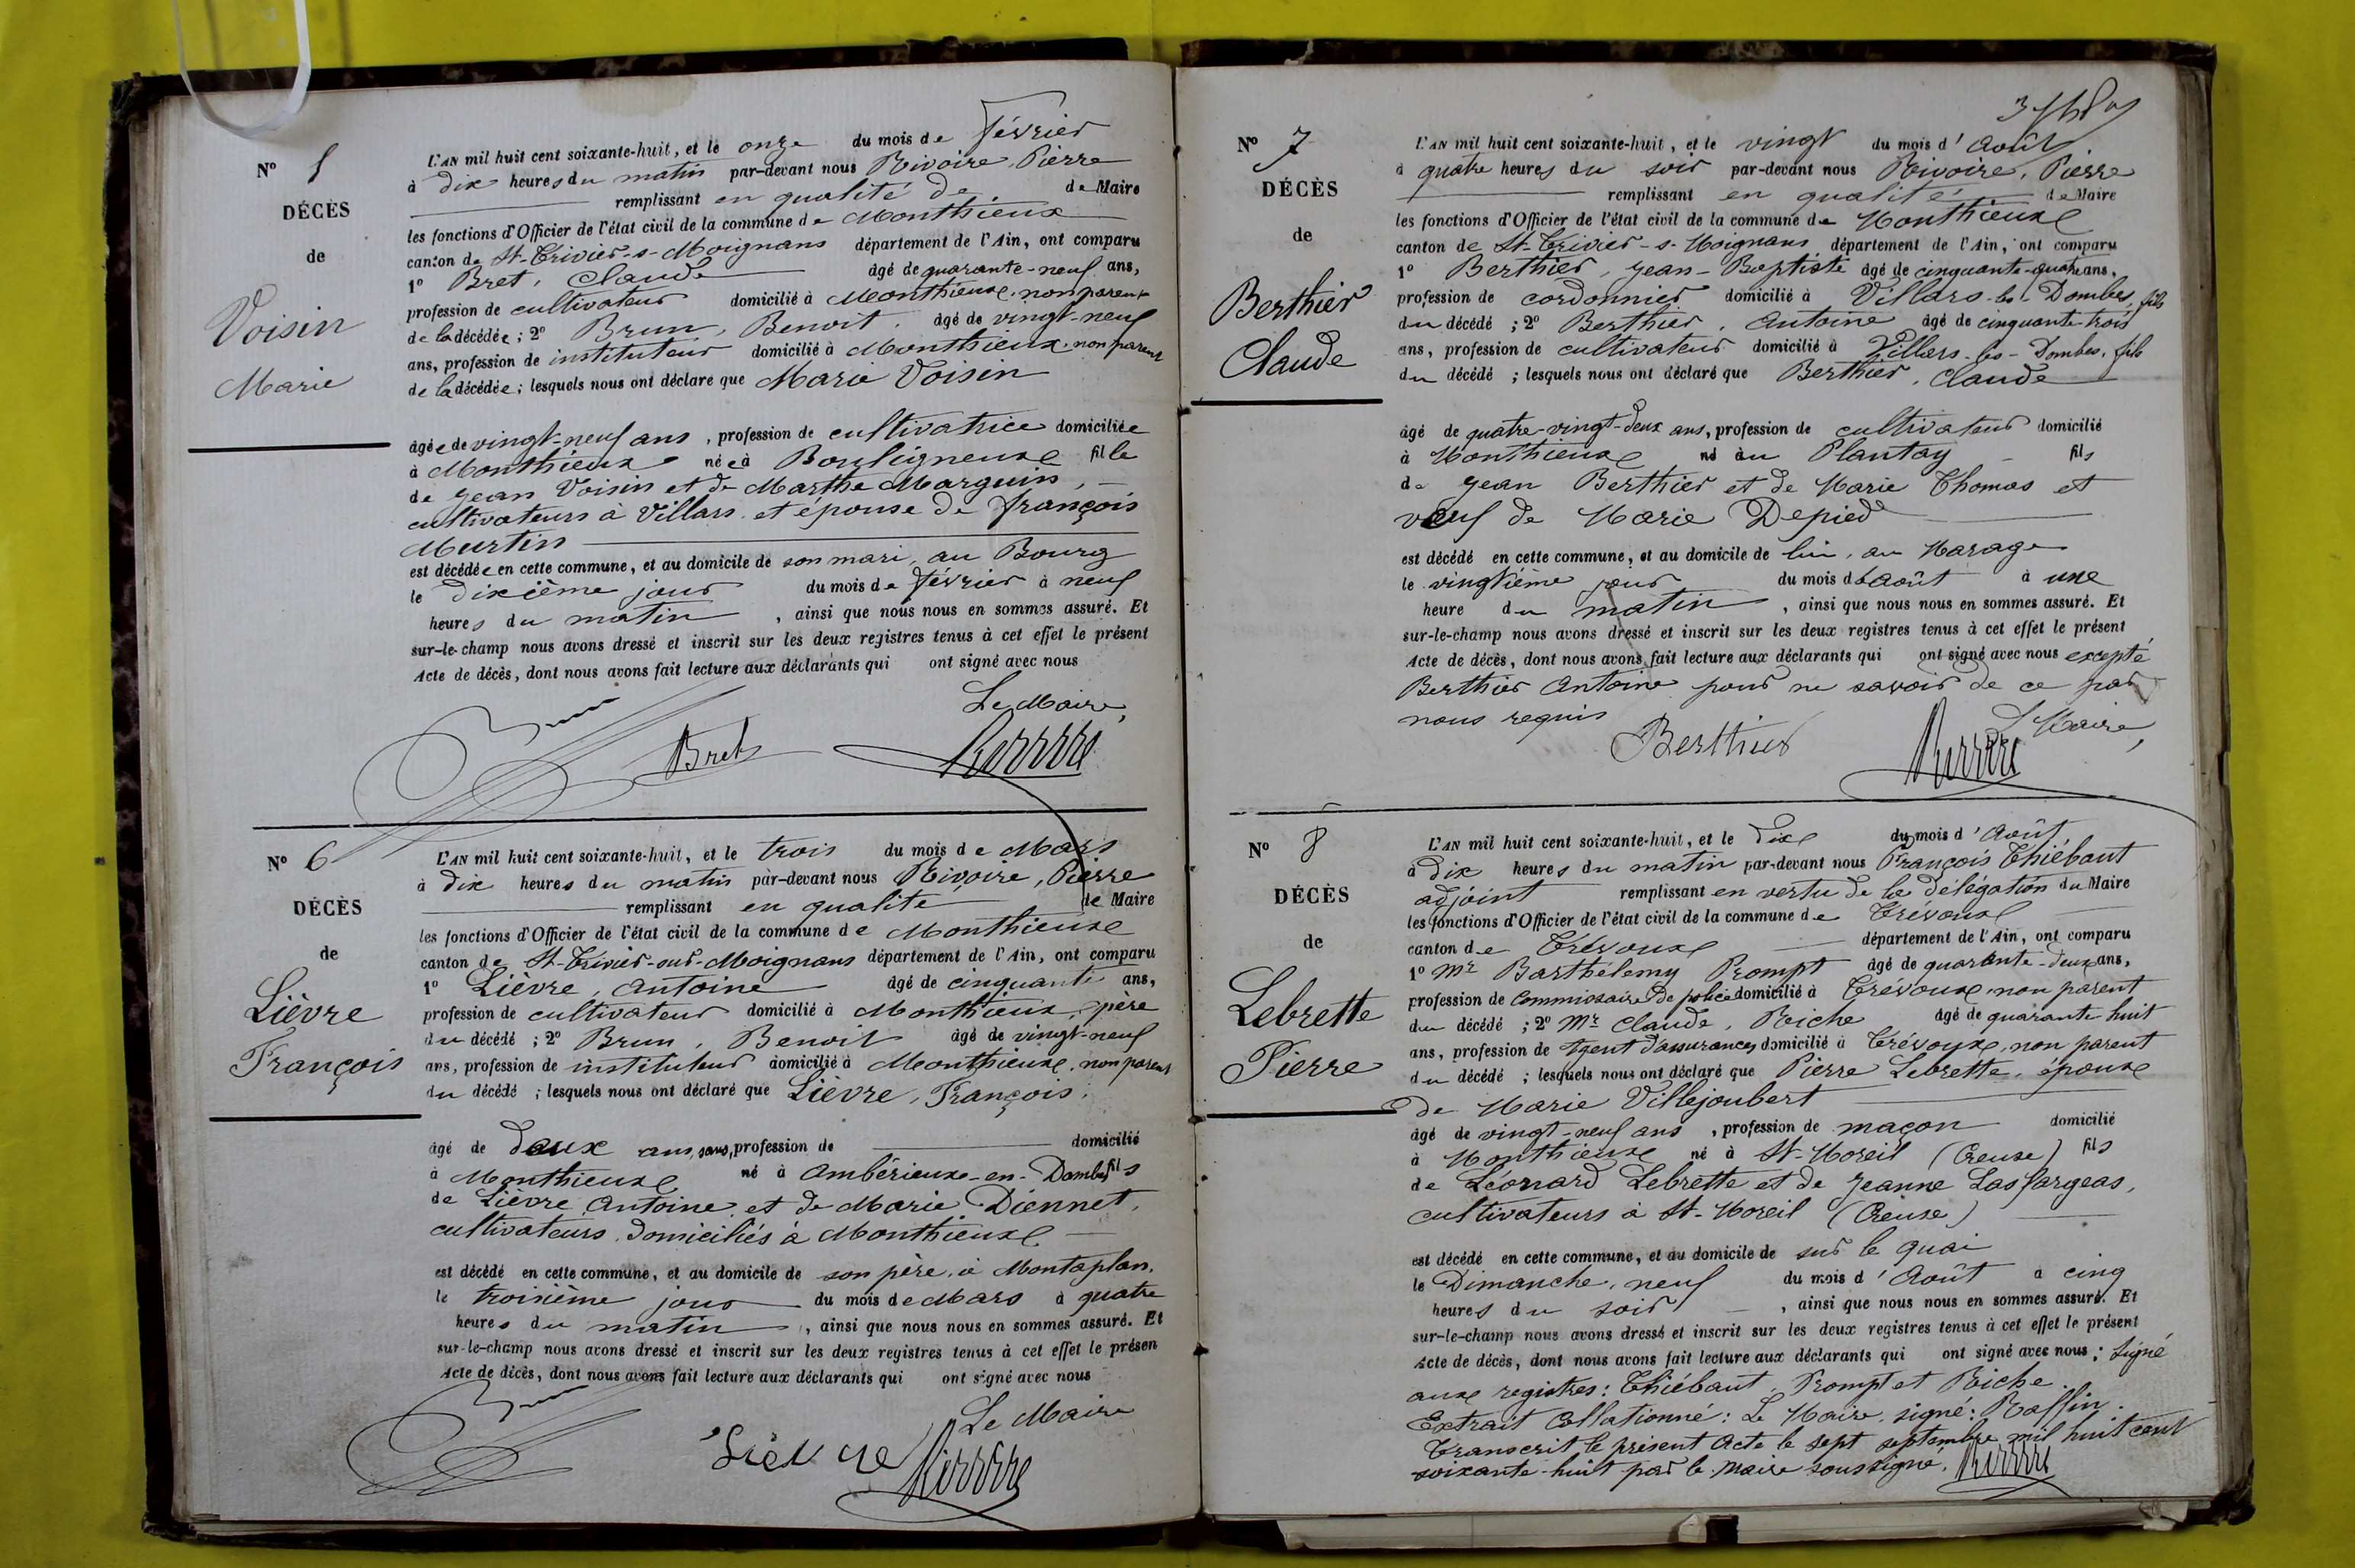 N° 5
DÉCÈS
de
Voisin
Marie
L'AN mil huit cent soixante-huit, et le onze du mois de février
à dix heures du matin par-devant nous Rivoire Pierre
remplissant en qualité de de Maire
les fonctions d'Officier de l'état civil de la commune de Monthieux
canton de St-Trivier-s-Moignans département de l'Ain, ont comparu
1° Bret, Claude âgé de quarante-neuf ans,
profession de cultivateur domicilié à Monthieux, non parent
de la décédée ; 2° Brun, Benoit, âgé de vingt-neuf
ans, profession de instituteur domicilié à Monthieux, non parent
de la décédée ; lesquels nous ont déclaré que Marie Voisin
âgée de vingt-neuf ans, profession de cultivatrice domiciliée
à Monthieux née à Bouligneux fille
de Jean Voisin et de Marthe Marguin,
cultivateurs à Villars et épouse de françois
Murtin
est décédée en cette commune, et au domicile de son mari, au Bourg
le dixième jour du mois de février à neuf
heures du matin, ainsi que nous nous en sommes assuré. Et
sur-le-champ nous avons dressé et inscrit sur les deux registres tenus à cet effet le présent
Acte de décès, dont nous avons fait lecture aux déclarants qui ont signé avec nous
Le Maire,
Brun Bret Rivoire
N° 6
DÉCÈS
de
Lièvre
François
L'AN mil huit cent soixante-huit, et le trois du mois de Mars
à dix heures du matin par-devant nous Rivoire, Pierre
remplissant en qualité de Maire
les fonctions d'Officier de l'état civil de la commune de Monthieux
canton de St-Trivier-sur-Moignans département de l'Ain, ont comparu
1° Lièvre, Antoine âgé de cinquante ans,
profession de cultivateur domicilié à Monthieux, père
du décédé ; 2° Brun, Benoit âgé de vingt-neuf
ans, profession de instituteur domicilié à Monthieux, non parent
du décédé ; lesquels nous ont déclaré que Lièvre, François,
âgé de deux ans, sans, profession de domicilié
à Monthieux né à Ambérieux-en-Dombes fils
de Lièvre Antoine et de Marie Diennet,
cultivateurs domiciliés à Monthieux
est décédé en cette commune, et au domicile de son père, à Montaplan,
le troisième jour du mois de Mars à quatre
heures du matin, ainsi que nous nous en sommes assuré. Et
sur-le-champ nous avons dressé et inscrit sur les deux registres tenus à cet effet le présen
Acte de décès, dont nous avons fait lecture aux déclarants qui ont signé avec nous
Le Maire
Brun Lièvre Rivoire
N° 7
DÉCÈS
de
Berthier
Claude
L'AN mil huit cent soixante-huit, et le vingt du mois d'Août
à quatre heures du soir par-devant nous Rivoire, Pierre
remplissant en qualité de Maire
les fonctions d'Officier de l'état civil de la commune de Monthieux
canton de St-Trivier-s-Moignans, département de l'Ain, ont comparu
1° Berthier, Jean-Baptiste âgé de cinquante-quatre ans,
profession de cordonnier domicilié à Villars-les-Dombes, fils
du décédé ; 2° Berthier, Antoine âgé de cinquante-trois
ans, profession de cultivateur domicilié à Villars-les-Dombes, fils
du décédé ; lesquels nous ont déclaré que Berthier, Claude
âgé de quatre-vingt-deux ans, profession de cultivateur domicilié
à Monthieux né au Plantay fils
de Jean Berthier et de Marie Thomas et
veuf de Marie Depied
est décédé en cette commune, et au domicile de lui, au Marage
le vingtième jour du mois d'août à une
heure du matin, ainsi que nous nous en sommes assuré. Et
sur-le-champ nous avons dressé et inscrit sur les deux registres tenus à cet effet le présent
Acte de décès, dont nous avons fait lecture aux déclarants qui ont signé avec nous excepté
Berthier Antoine pour ne savoir de ce par
nous requis
Le Maire,
Berthier Rivoire
N° 8
DÉCÈS
de
Lebrette
Pierre
L'AN mil huit cent soixante-huit, et le dix du mois d'Août
à dix heures du matin par-devant nous François Thiébaut
adjoint remplissant en vertu de la délégation du Maire
les fonctions d'Officier de l'état civil de la commune de Trévoux
canton de Trévoux département de l'Ain, ont comparu
1° Mr Barthélemy Prompt âgé de quarante-deux ans,
profession de Commissaire de police domicilié à Trévoux, non parent
du décédé ; 2° Mr Claude, Riche âgé de quarante huit
ans, profession de Agent d'assurances domicilié à Trévoux, non parent
du décédé ; lesquels nous ont déclaré que Pierre Lebrette, époux
de Marie Villejoubert
âgé de vingt-neuf ans, profession de maçon domicilié
à Monthieux né à St-Moreil (Creuse) fils
de Léonard Lebrette et de Jeanne Lasfargeas,
cultivateurs à St-Moreil (Creuse)
est décédé en cette commune, et au domicile de sur le quai
le Dimanche, neuf du mois d'Août à cinq
heures du soir, ainsi que nous nous en sommes assuré. Et
sur-le-champ nous avons dressé et inscrit sur les deux registres tenus à cet effet le présent
Acte de décès, dont nous avons fait lecture aux déclarants qui ont signé avec nous ; Signé
aux registres : Thiébaut, Prompt et Riche.
Extrait Collationné : Le Maire, signé : Raffin.
Transcrit le présent Acte le sept septembre mil huit cent
soixante-huit par le Maire soussigné. Rivoire